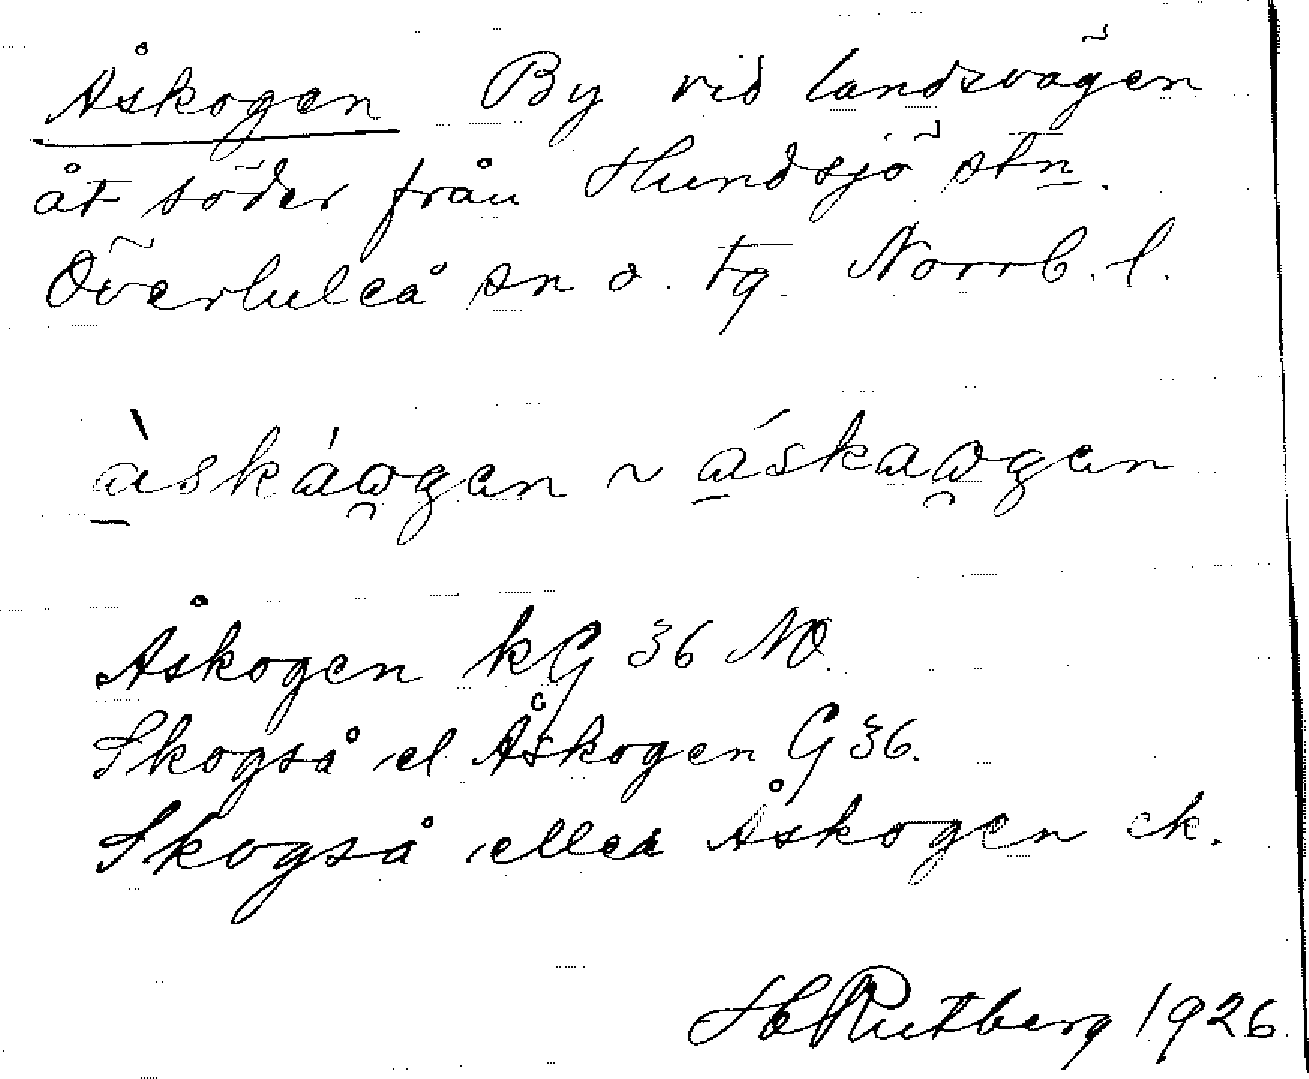 Åskogen By vid landsvägen
åt söder från Hundsjö stn.
Överluleå sn o. tg. Norrb. l.
à̱skáo̯gen ~ á̱skao̯gen
Åskogen kG 36 NO.
Skogså el Åskogen G 36.
Skogså eller Åskogen ek.
HRutberg 1926